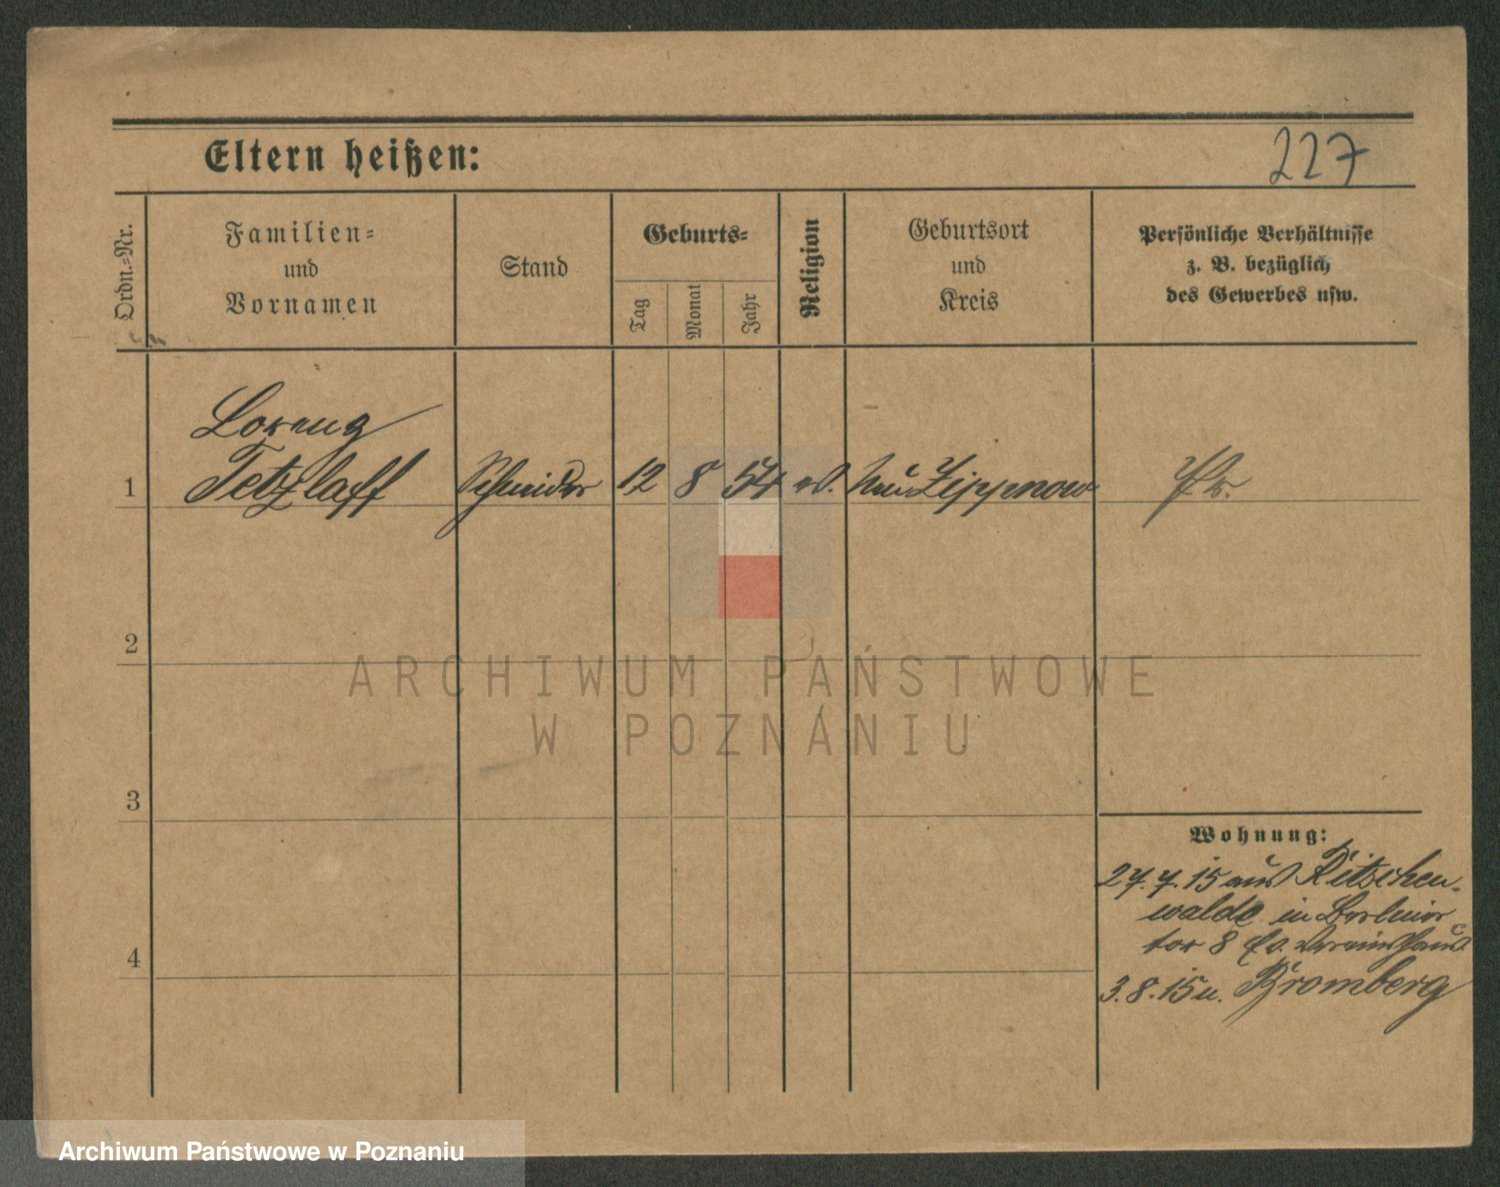 Eltern heißen:
227
Ordn.-Nr.
Familien-
und
Vornamen
Stand
Geburts-
Tag
Monat
Jahr
Religion
Geburtsort
und
Kreis
Persönliche Verhältnisse
z. B. bezüglich
des Gewerbes usw.
Lorenz
1 Tetzlaff Schneider 12 8 54 ev. Neu Zippnow Pr.
2
3
4
Wohnung:
27.7.15 aus Ritschen-
walde in Berliner
tor 8 Ev. Vereinshaus
3.8.15 n. Bromberg
ARCHIWUM PAŃSTWOWE
W POZNANIU
Archiwum Państwowe w Poznaniu